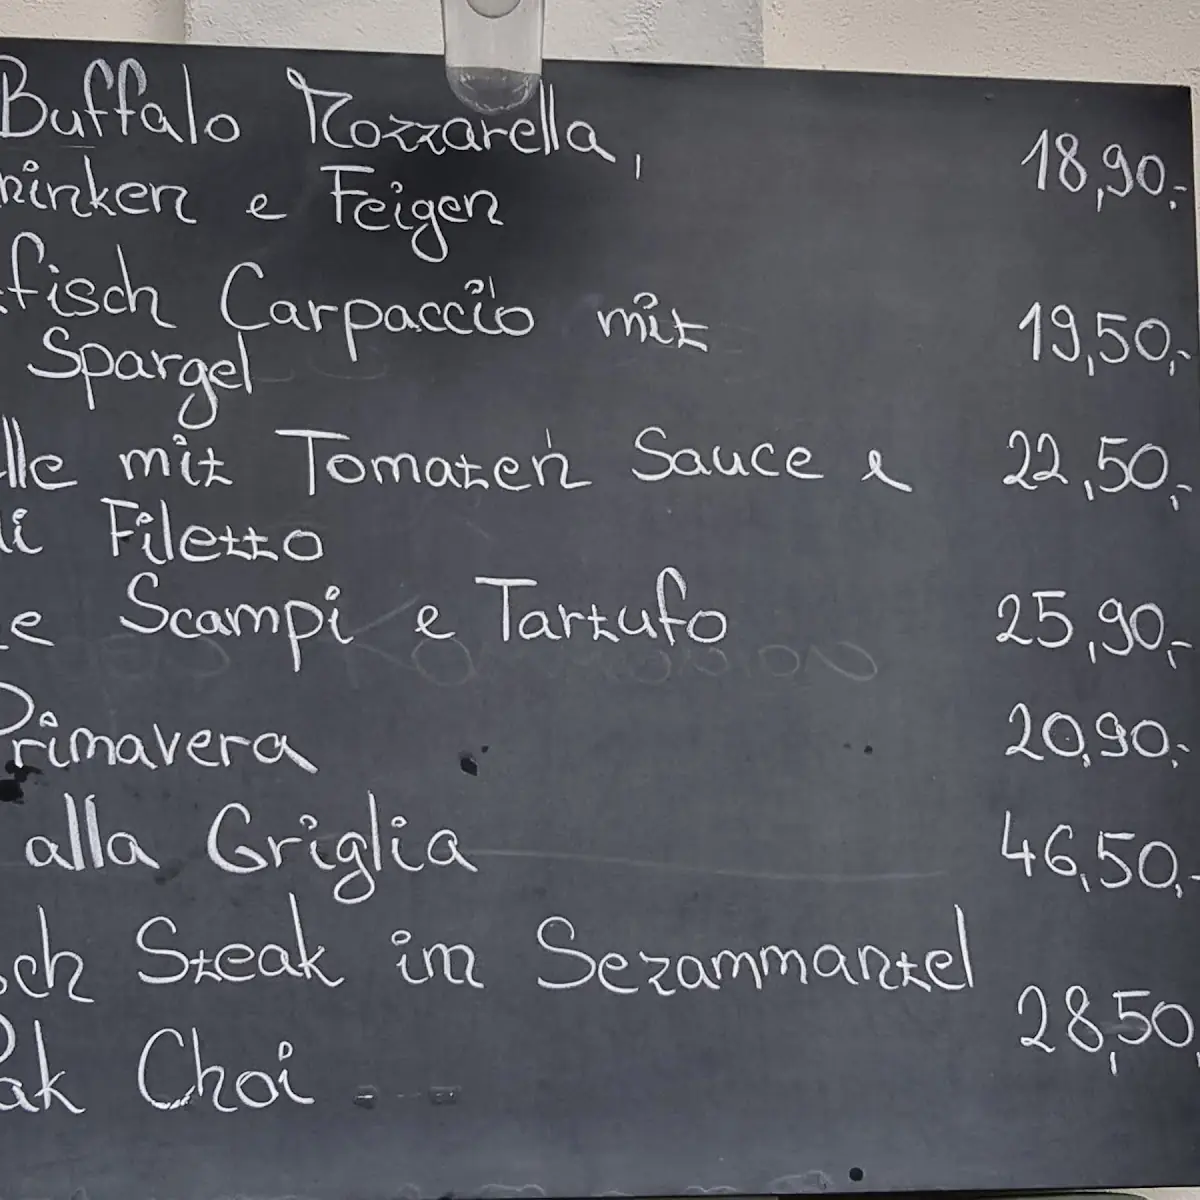 Buffalo Mozzarella, 18,90.-
hinken e Feigen
fisch Carpaccio mit 19,50.-
Spargel
lle mit Tomaten Sauce e 22,50.-
di Filetto
e Scampi e Tartufo 25,90.-
Primavera 20,90.-
alla Griglia 46,50.-
sch Steak im Sezammantel
28,50,
Pak Choi